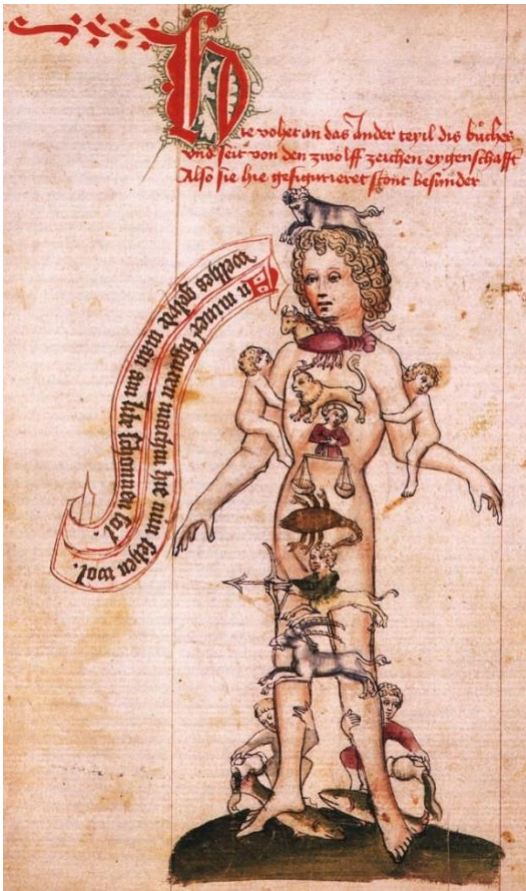 Hie vohet an das Ander teyil dis bůches
Vnd seit von den zwölff zeichen eygenschafft
Also sie hie gefigurieret stont besunder
An miner figuren machtu hie nun sehen wol.
welhes gelide man am libe schonnen sol.